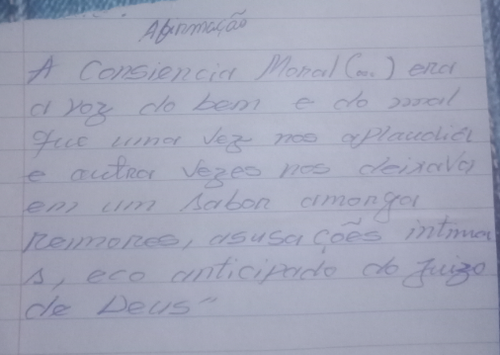 Afirmação
A Consiencia Moral (...) era
a voz do bem e do mal
que uma vez nos aplaudia
e autra vezes nos deixava
em um sabor amonga
remores, asusações intima
s, eco anticipado do Juizo
de Deus"